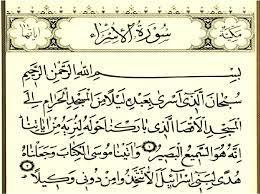 مكية سورة الإسراء آياتها
بسم الله الرحمن الرحيم
سبحان الذي أسرى بعبده ليلا من المسجد الحرام إلى
المسجد الأقصا الذي باركنا حوله لنريه من آياتنا
إنه هو السميع البصير وآتينا موسى الكتاب وجعلناه
هدى لبني إسرائيل ألا تتخذوا من دوني وكيلا